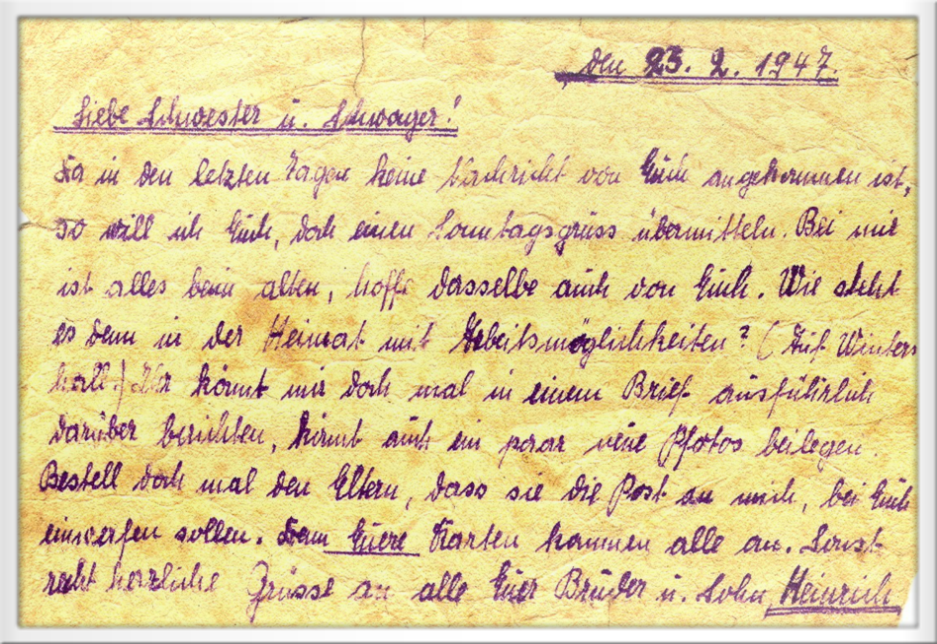 den 23. 2. 1947.
Liebe Schwester u. Schwager!
Da in den letzten Tagen keine Nachricht von Euch angekommen ist,
so will ich Euch, doch einen Sonntagsgruss übermitteln. Bei mir
ist alles beim alten, hoffe dasselbe auch von Euch. Wie steht
es denn in der Heimat mit Arbeitsmöglichkeiten? (Auf Winters
hall.) Ihr könnt mir doch mal in einem Brief ausführlich
darüber berichten, könnt auch ein paar neue Pfotos beilegen.
Bestell doch mal den Eltern, dass sie die Post an mich, bei Euch
einwerfen sollen. Denn Euere Karten kommen alle an. Sonst
recht herzliche Grüsse an alle Euer Bruder u. Sohn Heinrich